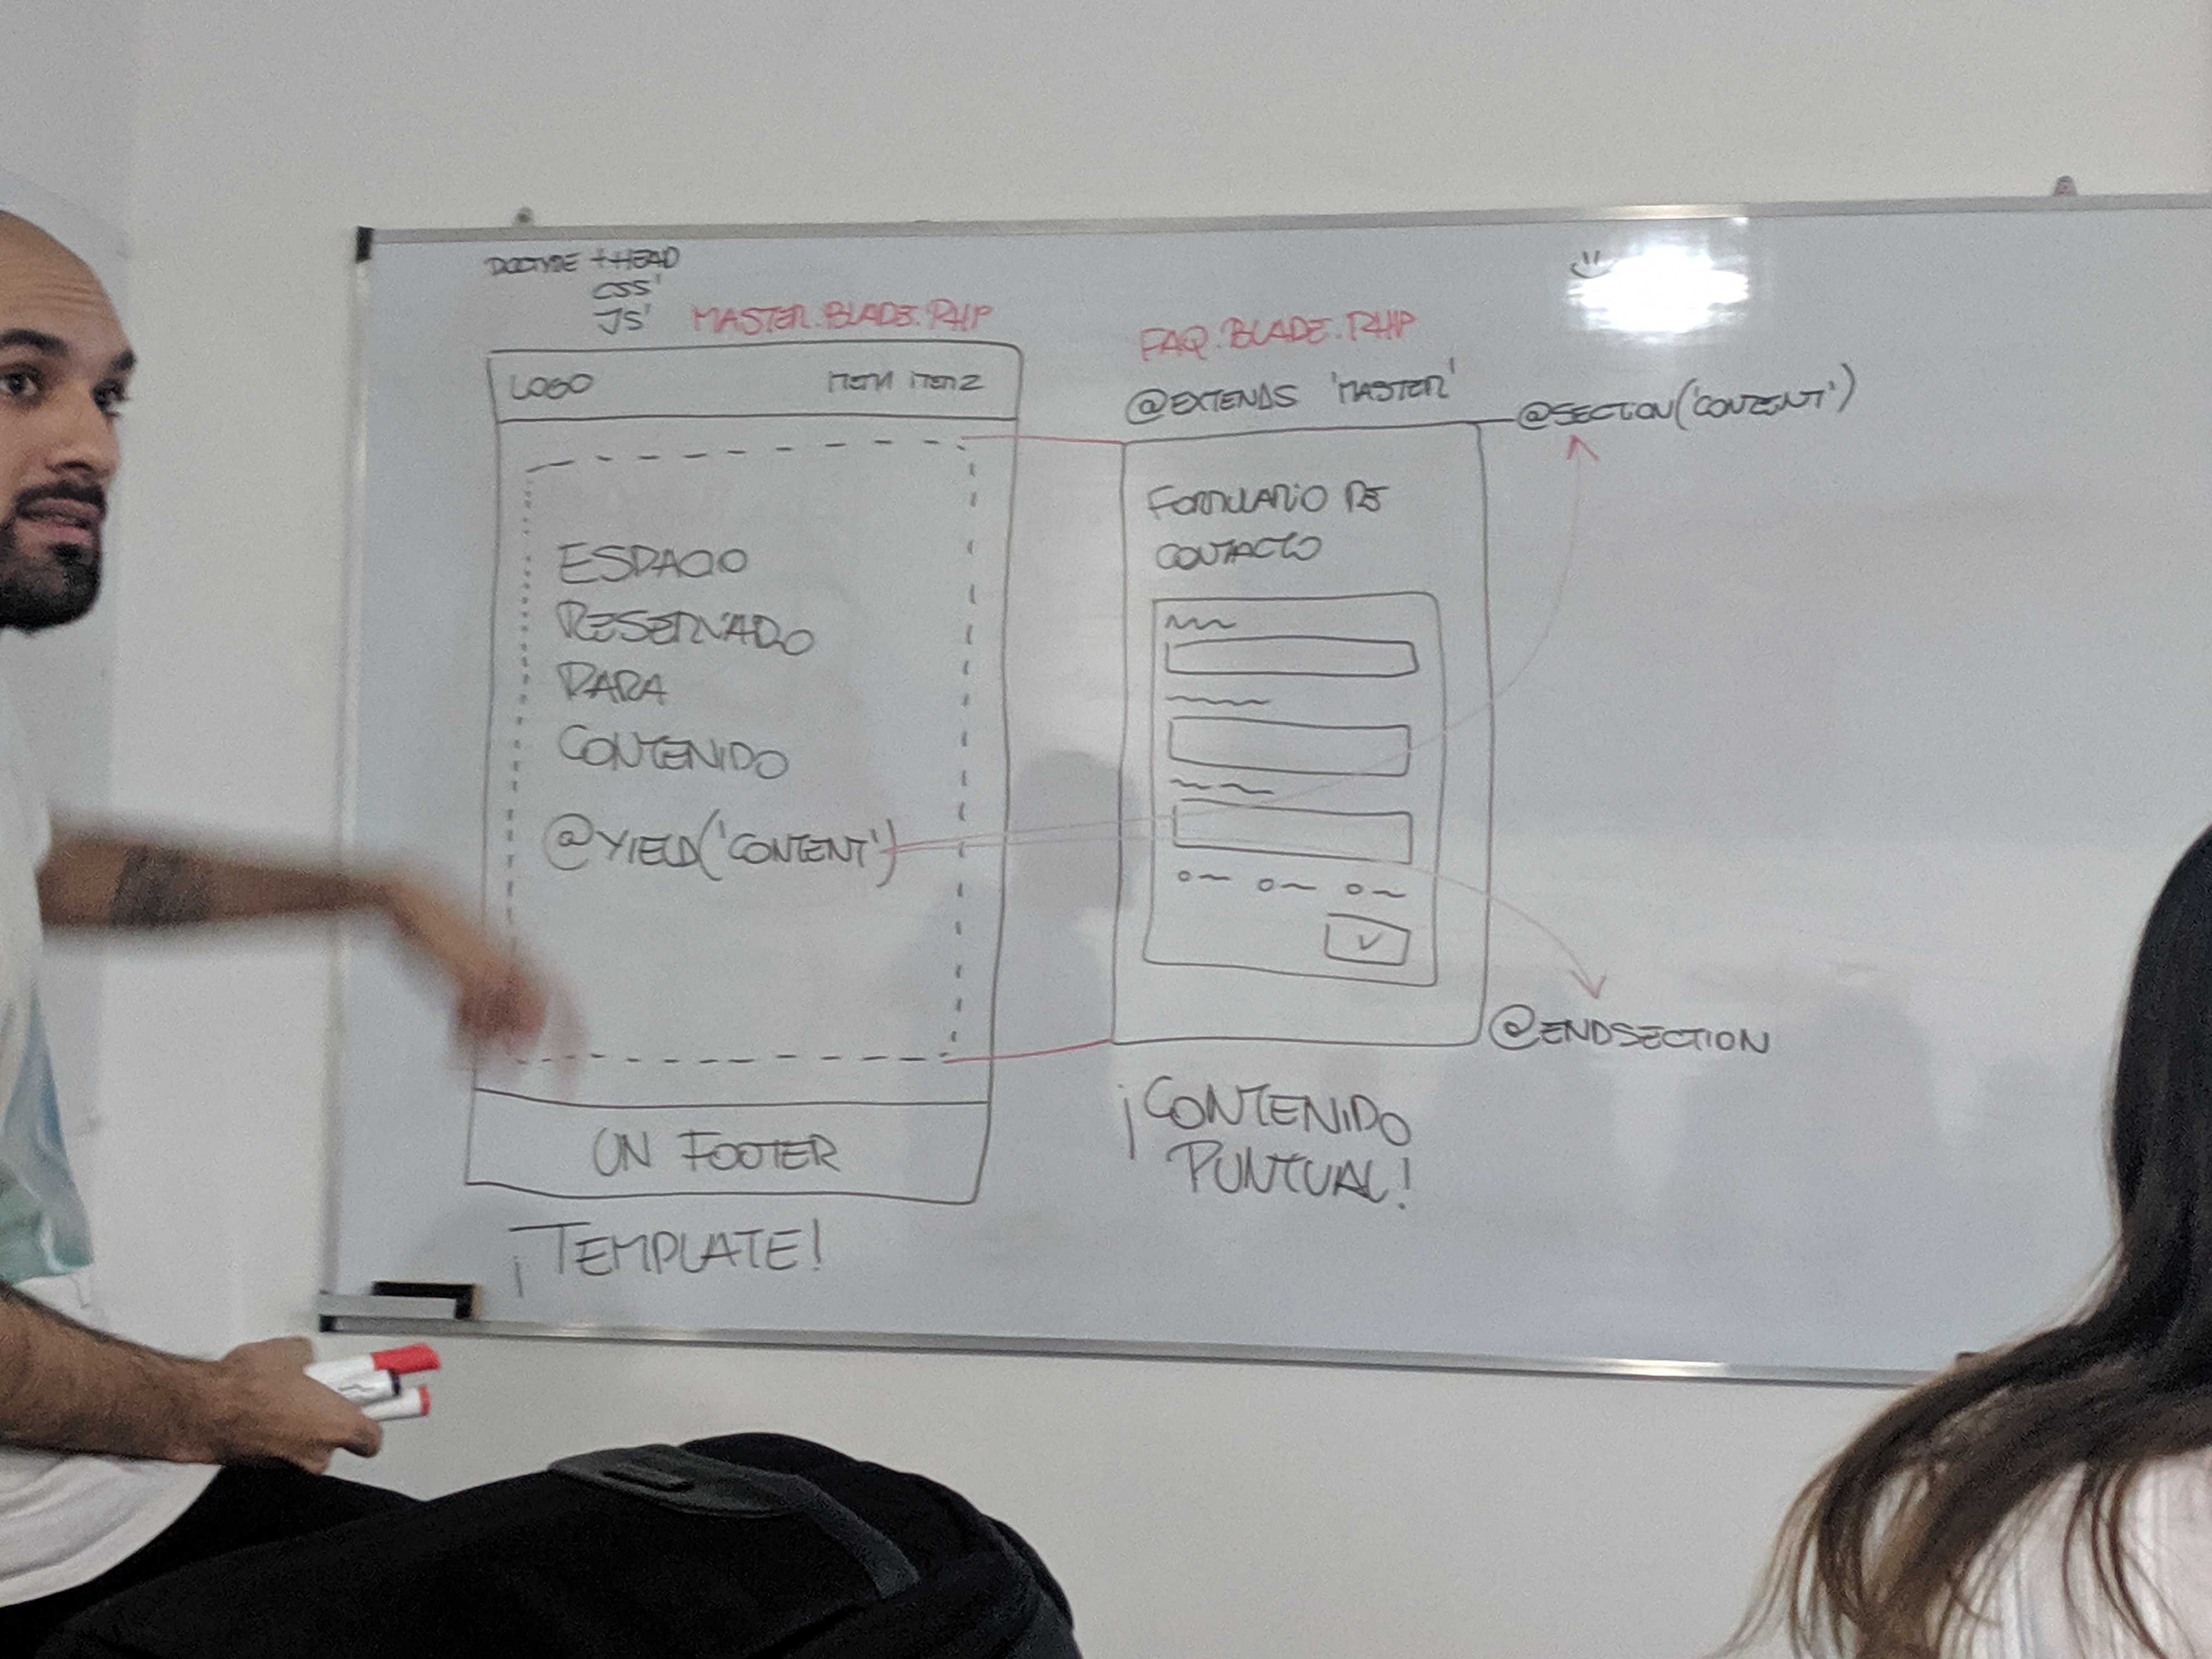 DOCTYPE + HEAD
CSS'
JS'
MASTER.BLADE.PHP
LOGO ITEM1 ITEM2
ESPACIO
RESERVADO
PARA
CONTENIDO
@YIELD('CONTENT')
UN FOOTER
¡TEMPLATE!
FAQ.BLADE.PHP
@EXTENDS 'MASTER'
@SECTION('CONTENT')
FORMULARIO DE
CONTACTO
@ENDSECTION
¡CONTENIDO
PUNTUAL!